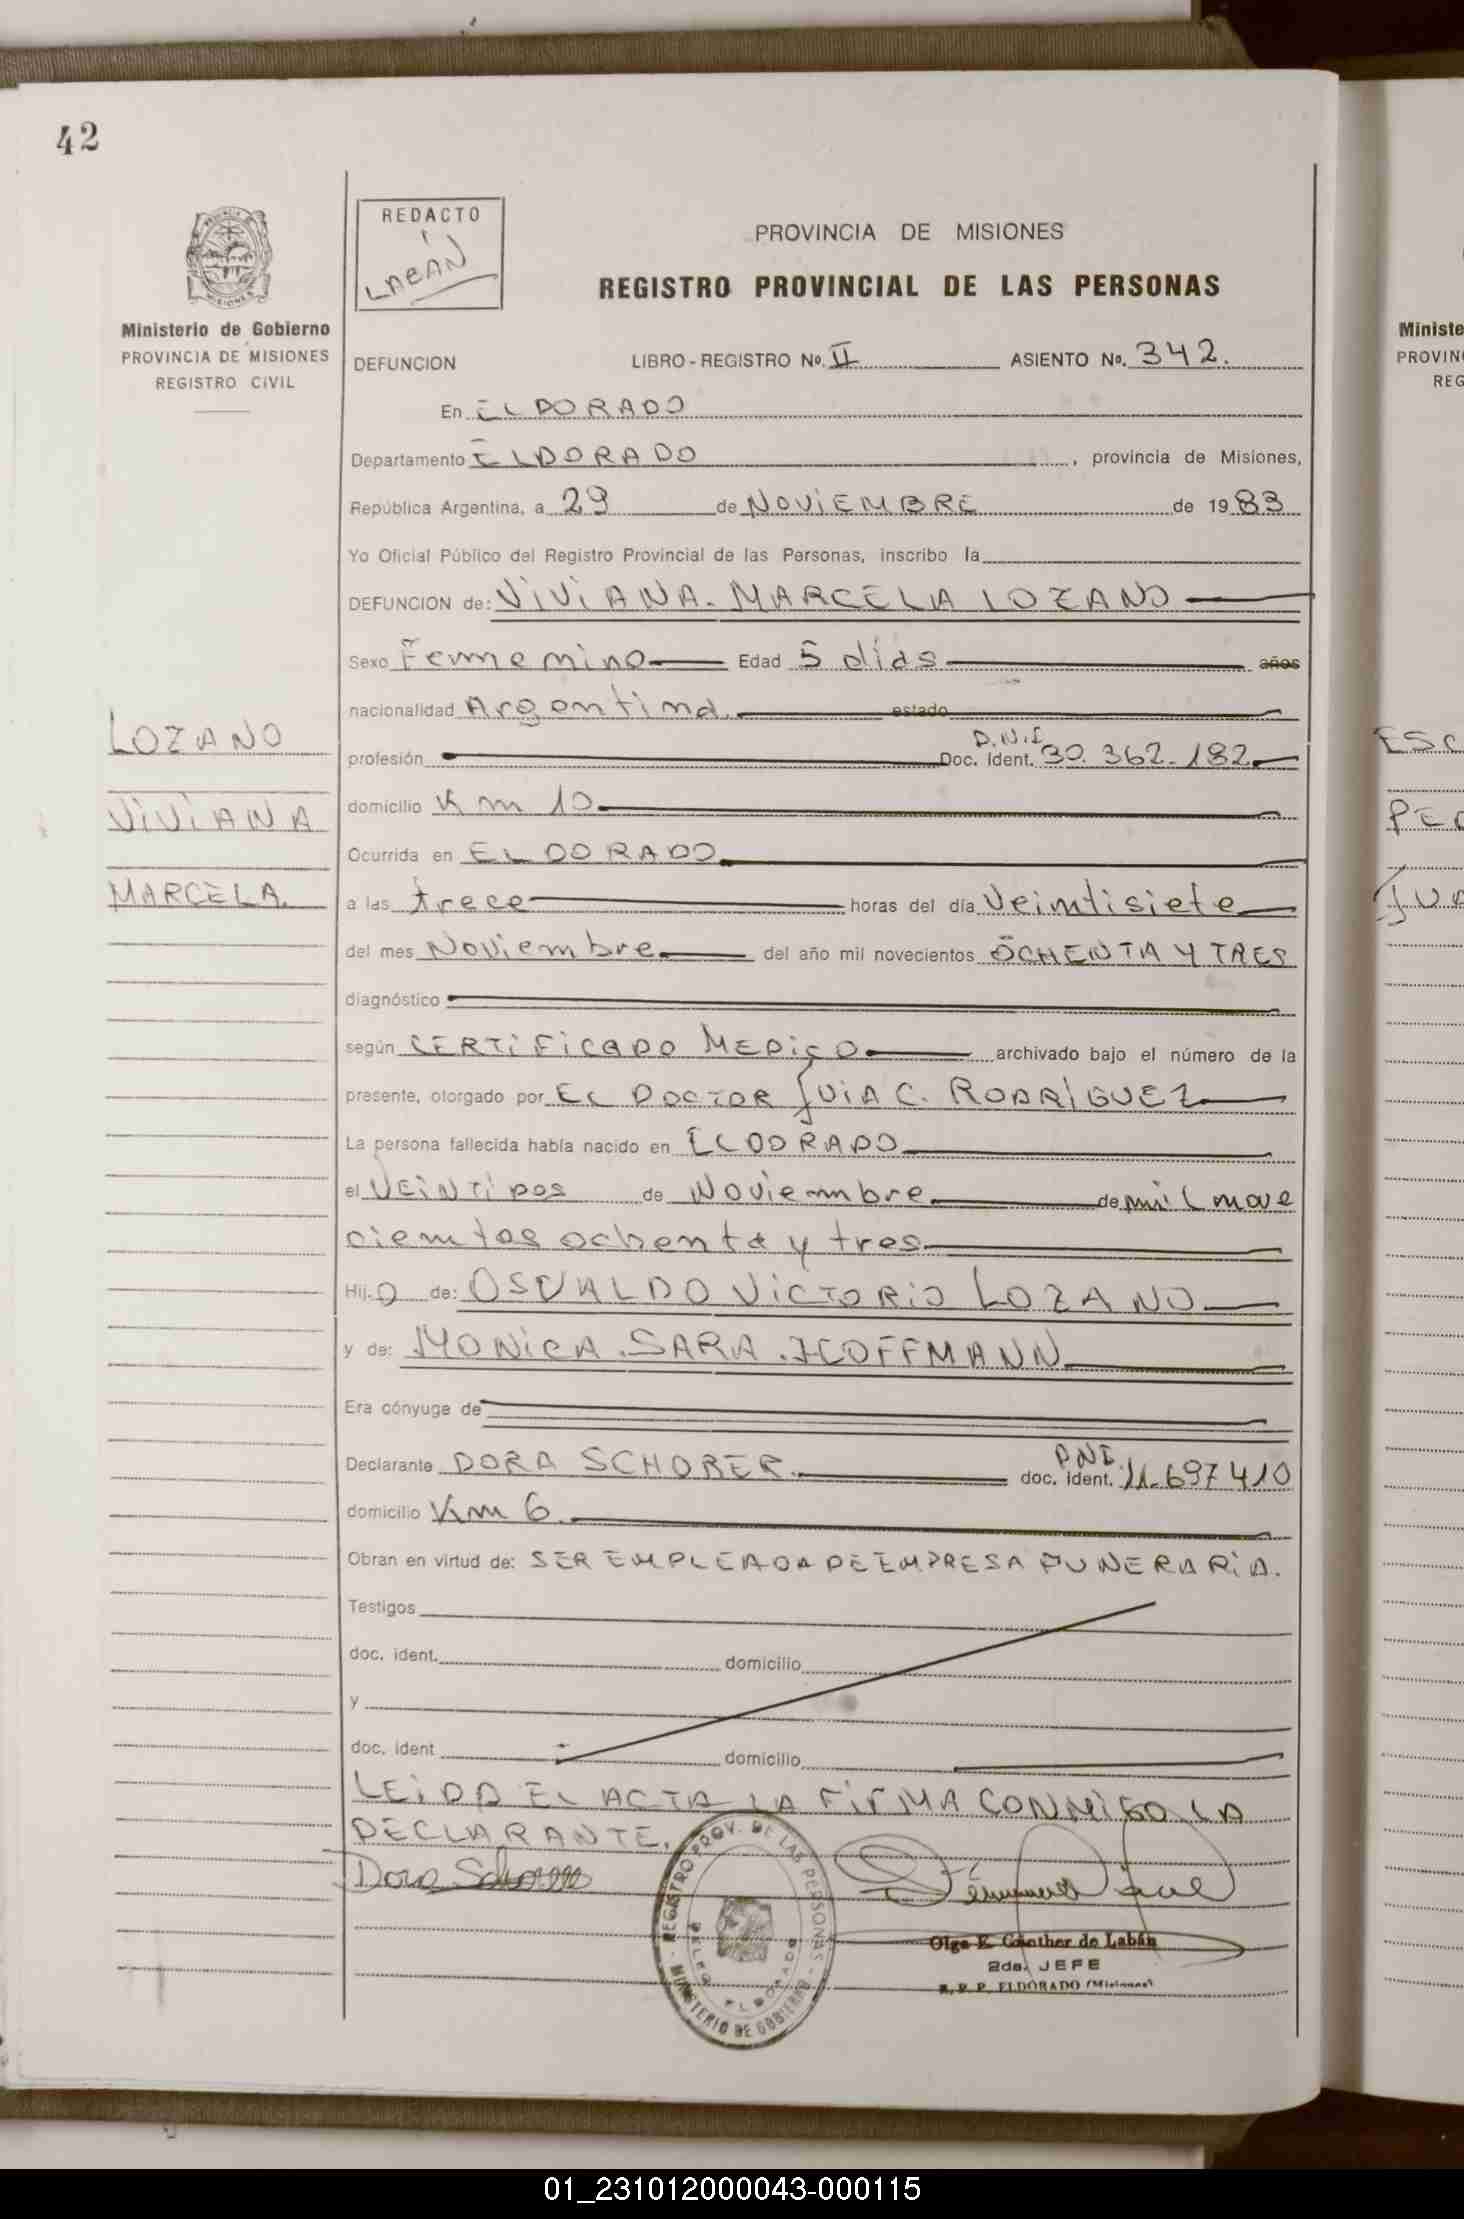 42
REDACTO
LABÁN
PROVINCIA DE MISIONES
REGISTRO PROVINCIAL DE LAS PERSONAS
Ministerio de Gobierno
PROVINCIA DE MISIONES
REGISTRO CIVIL
DEFUNCION LIBRO-REGISTRO No. II ASIENTO No. 342.
En ELDORADO
Departamento ELDORADO, provincia de Misiones,
República Argentina, a 29 de NOViEMBRE de 1983
Yo Oficial Público del Registro Provincial de las Personas, inscribo la
DEFUNCION de: ViViANA. MARCELA LOZANO
Sexo Femenino Edad 5 días años
nacionalidad Argentina. estado
D.N.I
profesión Doc. Ident. 30.362-182
domicilio Km 10
Ocurrida en ELDORADO
a las trece horas del día Veintisiete
del mes Noviembre del año mil novecientos OCHENTA Y TRES
diagnóstico
según CERTiFicaDO MEDiCO archivado bajo el número de la
presente, otorgado por EL DOCTOR JUIA C. RODRÍGUEZ
La persona fallecida había nacido en ELDORADO
el VEiNTiDOS de Noviembre de mil nove
cientos ochenta y tres
Hij.a de: OSVALDO ViCTORiO LOZANO
y de: MONiCA. SARA. HOFFMANN
Era cónyuge de
DNI.
Declarante DORA SCHOBER. doc. ident. 11-697410
domicilio Km 6.
Obran en virtud de: SER EMPLEADA DE EMPRESA FUNERARiA.
Testigos
doc. ident. domicilio
y
doc. ident domicilio
LEiDA EL ACTA LA FiRMA CONMIGO LA
DECLARANTE.
Dora Schober
REGISTRO PROV. DE LAS PERSONAS - MINISTERIO DE GOBIERNO
ELDORADO
Olga E. Günther de Labán
2da. JEFE
R. P. P. ELDORADO (Misiones)
LOZANO
ViViANA
MARCELA.
Ministe
PROVIN
REG
ESC
PED
JUA
01_231012000043-000115